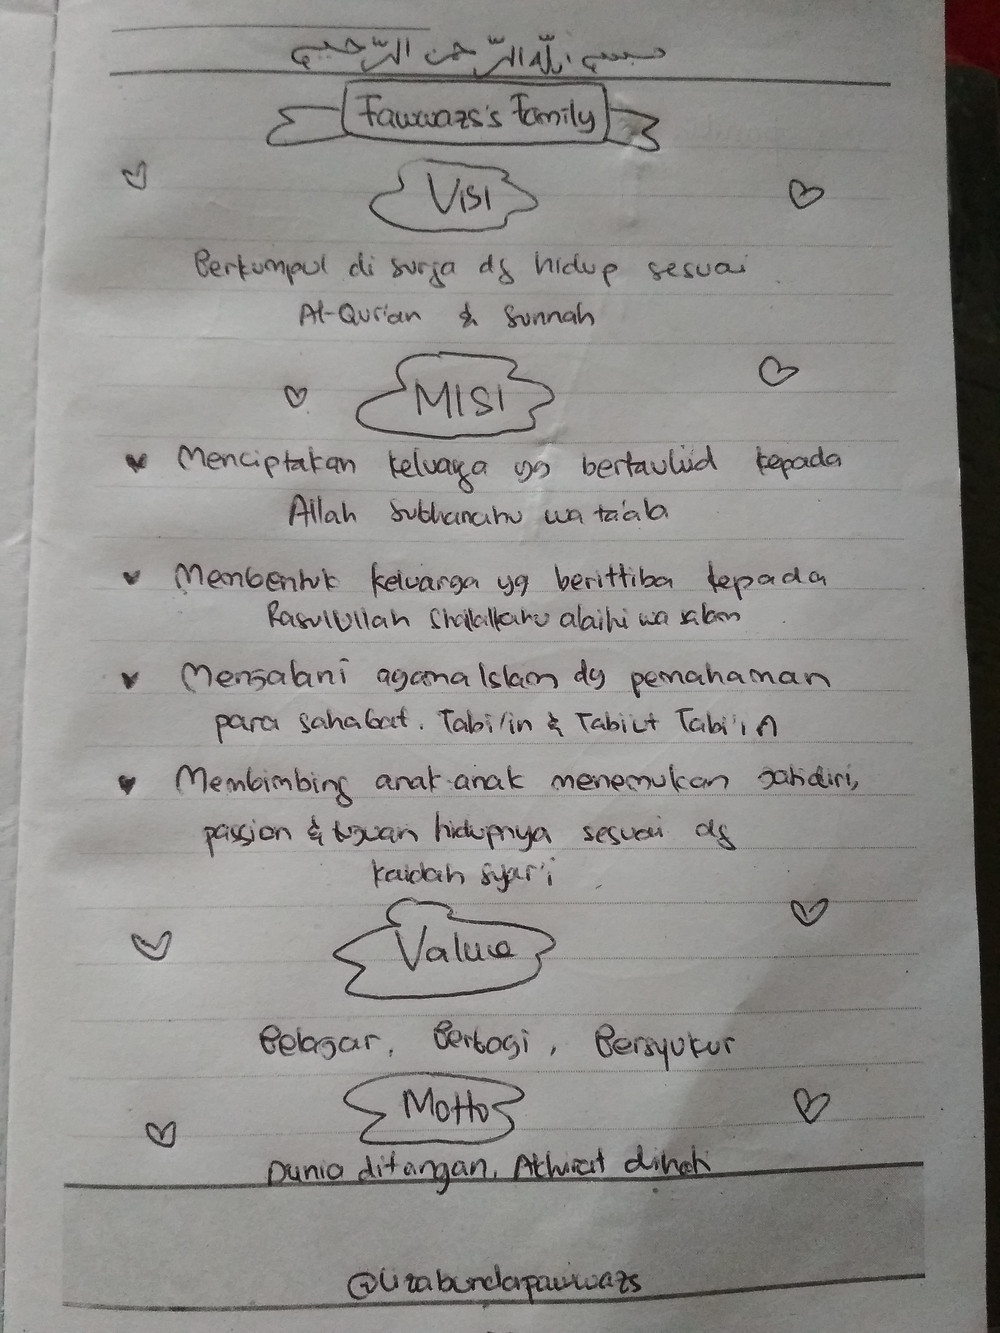 بسم الله الرّحمن الرّحيم
Fawwazs's Family
Visi
Berkumpul di surga dg hidup sesuai
Al-Qur'an & Sunnah
MISI
Menciptakan keluaga yg bertauhid kepada
Allah Subhanahu wa ta'ala
Membentuk keluarga yg berittiba kepada
Rasulullah Shalallahu alaihi wa salam
Menjalani agama Islam dg pemahaman
para sahabat. Tabi'in & Tabiut Tabi'in
Membimbing anak-anak menemukan jatidiri,
passion & tujuan hidupnya sesuai dg
kaidah syar'i
Value
Belajar, Berbagi, Bersyukur
Motto
Dunia ditangan, Akhirat dihati